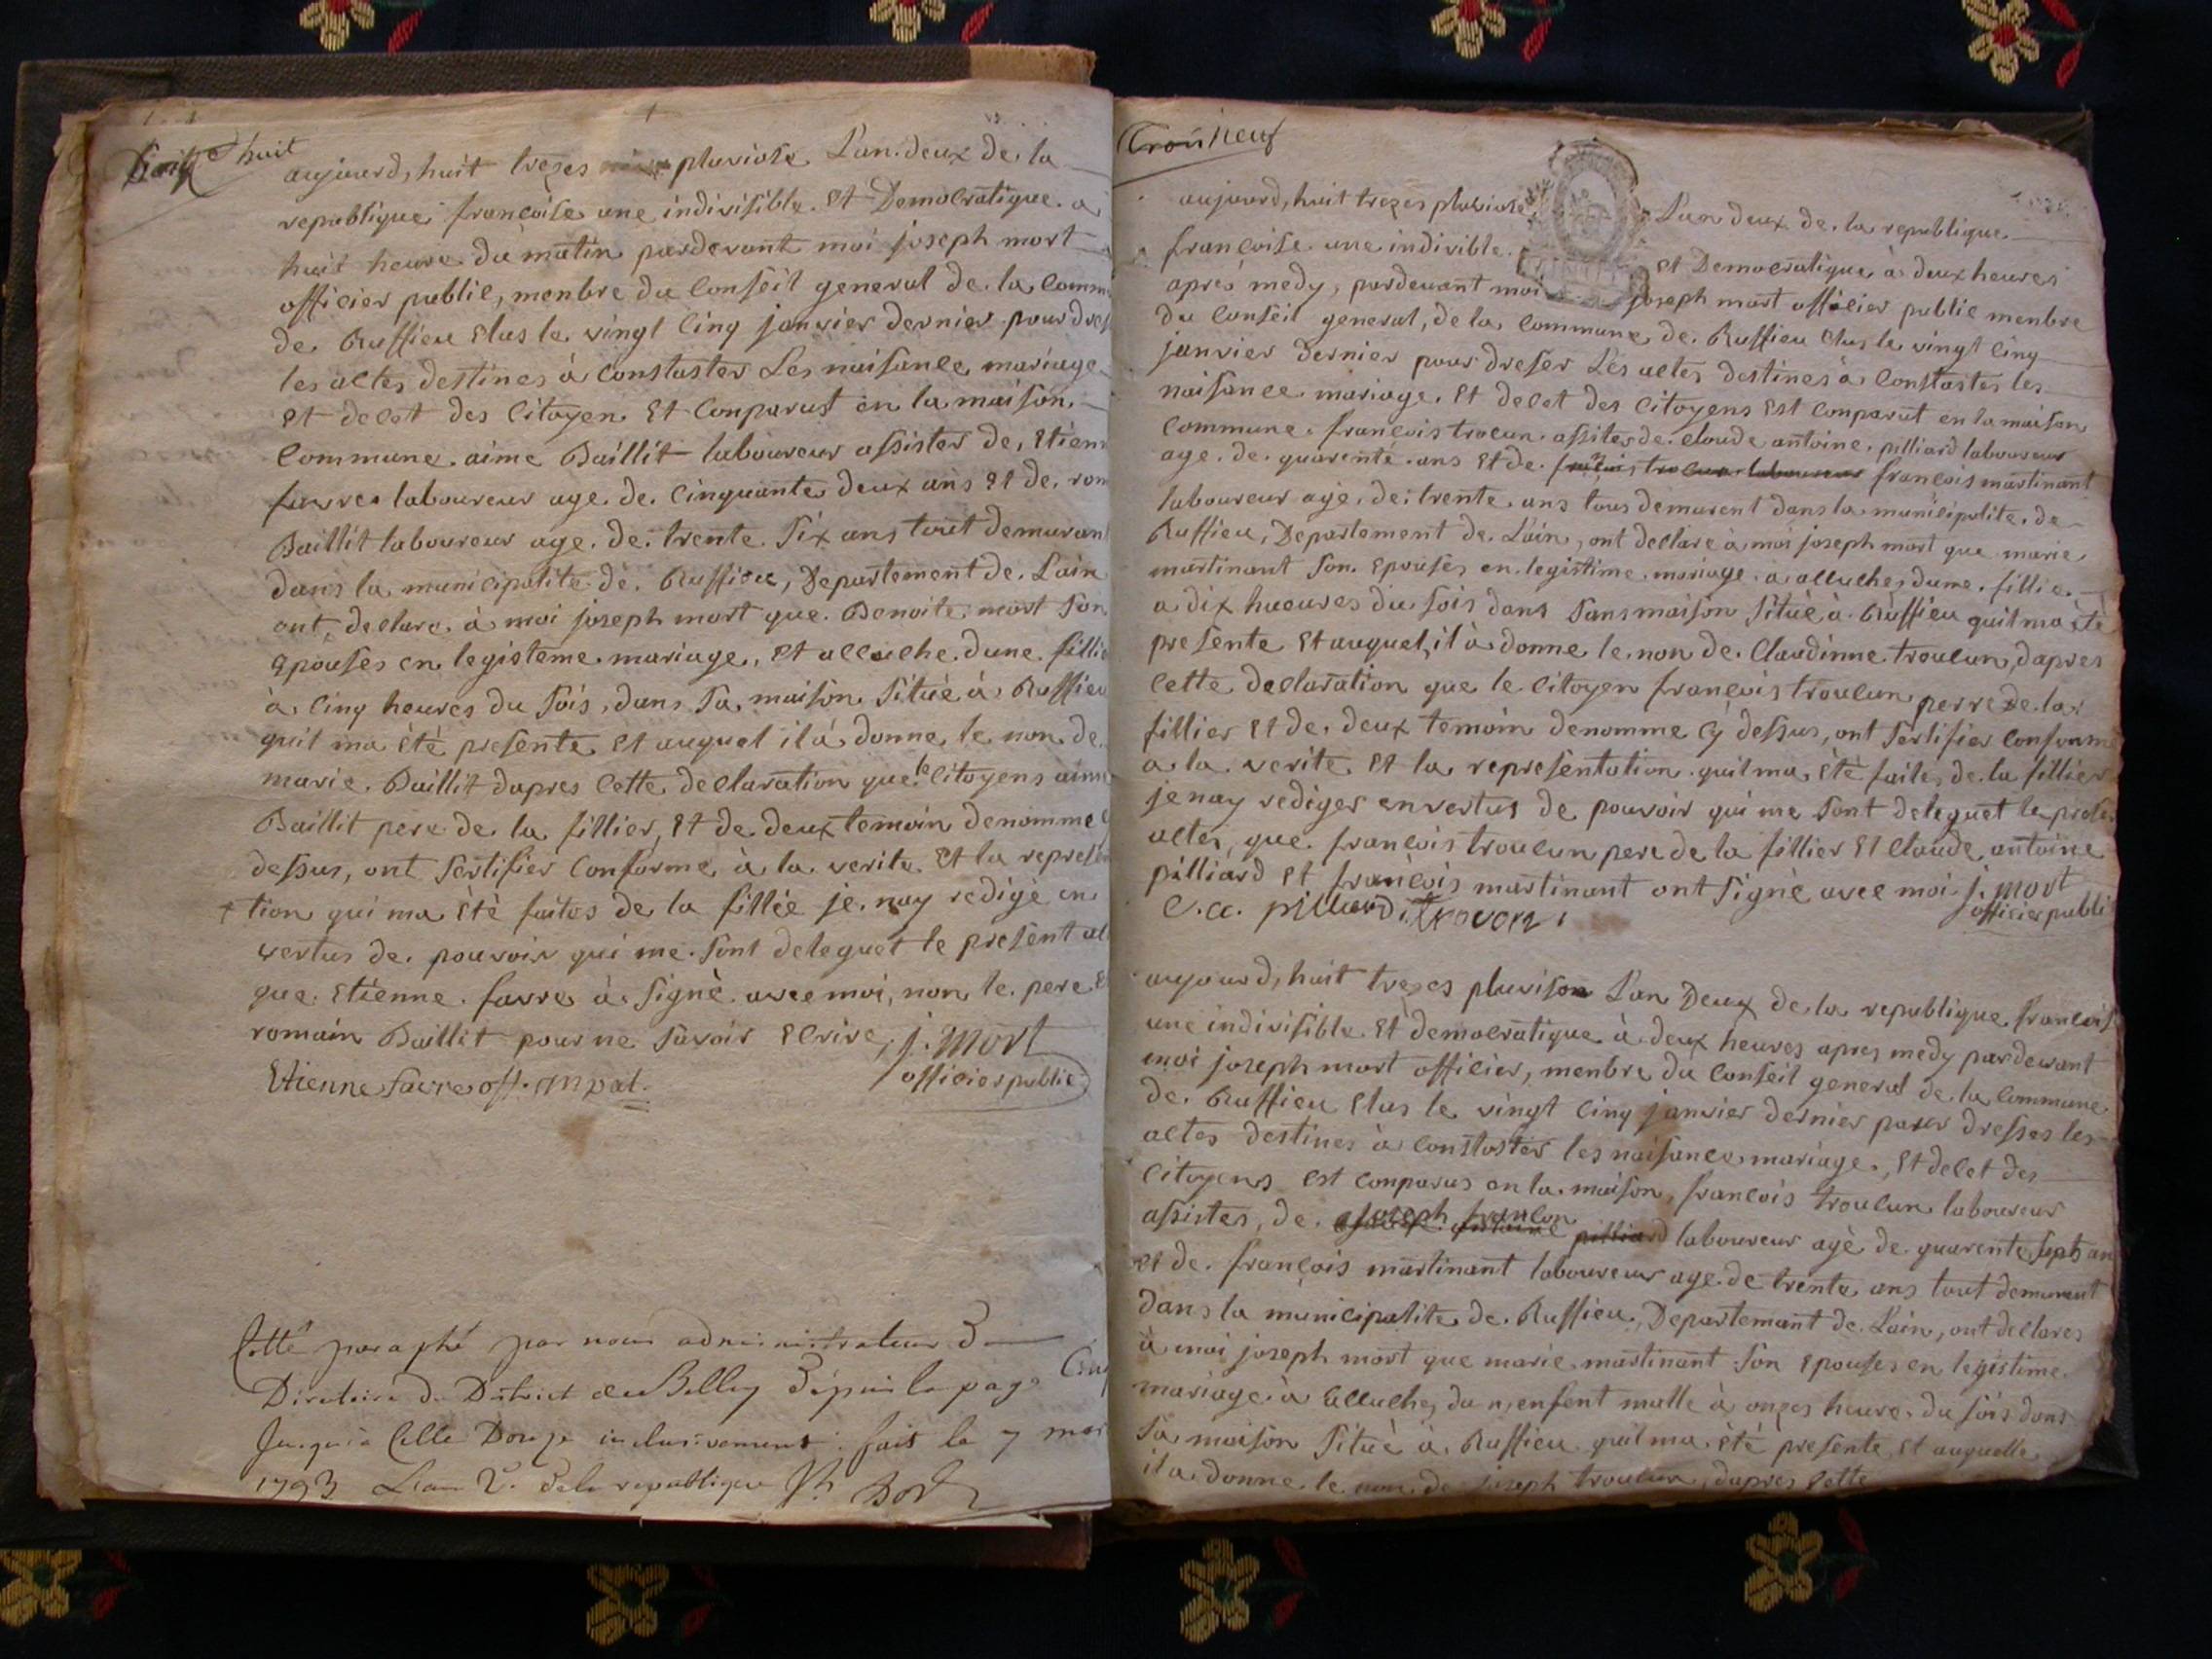 huit
aujourd, huit trezes pluviose L'an deux de la
republique francoise une indivisible Et Democratique a
huit heure du matin pardevant moi joseph mort
officier public, menbre du Conseil general de la Comm
de Ruffieu Elus le vingt Cinq janvier dernier pour dres
les actes destines à Constaster Les naisance mariage
Et decet des Citoyen Et Conparust en la maison
Commune aime Baillit laboureur assister de, Etien
favres laboureur age de Cinquante deux ans Et de rom
Baillit laboureur age de trente Six ans tout demurant
dans la municipalite de Ruffieu, Departement de Lain
ont declare à moi joseph mort que Benoite mort Son
Epouses en legisteme mariage, et accuche dune fillie
à Cinq heures du Sois, dans Sa maison Situé à Ruffieu
quil ma été presente Et auquel il à donne le non de
marie Baillit dapres Cette declaration que le Citoyens aime
Baillit pere de la fillier, Et de deux temoin denomme C
dessus, ont Sertifier Conforme à la verite Et la represen
+ tion qui ma été faites de la fillée je nay redigé en
vertus de pouvoir qui me Sont deleguet le present act
que Etienne favre à Signé avec moi, non le pere E
romain Baillit pour ne Savoir Ecrire, j. mort
Etienne favre off. mpal. officier public
Cotté paraphé par nous administrateur D
Directoire du District de Belley Depuis la page Cin
Jusqu'a Celle Douze inclusivement fait le 7 mar
1793 L'an 2e de la republique
Trois neuf
aujourd, huit trezes pluviose L'an deux de la republique
francoise une indivible Et Democratique à deux heures
aprés medy, pardevant moi joseph mort officier public menbre
du Conseil general, de la Commune de Ruffieu Elus le vingt Cinq
janvier dernier pour dreser Les actes destines à Constastes les
naisance mariage Et decet des Citoyens Est Conparut en la maison
Commune francois trocun assites de claude antoine pilliard laboureur
age de quarente ans Et de francois trocun laboureur francois martinant
laboureur agé de trente ans tous demurent dans la municipalite de
Ruffieu, Departement de Lain, ont declare à moi joseph mort que marie
martinant Son Epouses en legistime mariage à accuches dune fillie
a dix hueures du Sois dans Sans maison Situé à Ruffieu quil ma été
presente Et auquel, il à donne le non de Claudinne troucun, dapres
Cette declaration que le Citoyen francois troucun perre de la
fillier Et de deux temoin denomme Cy dessus, ont Sertifier Conforme
a la verite Et la representation quil ma été faite de la fillier
je nay rediger en vertus de pouvoir qui me Sont deleguet le prese
actes, que francois troucun pere de la fillier Et Claude antoine
pilliard et francois martinant ont Signé avec moi j. mort
C. a. pilliard. trocon officier publi
aujourd, huit trezes pluvison L'an Deux de la republique francois
une indivisible Et democratique à deux heures apres medy pardevant
moi joseph mort officier, menbre du Conseil general de la Commune
de Ruffieu Elus le vingt Cinq janvier dernier pour dresses les
actes destines à Constaster les naisance mariage, Et decet des
Citoyens est Conparus en la maison, francois troucun laboureur
assistes, de joseph francon
antoine pilliard laboureur agé de quarente sept an
et de francois martinant laboureur age de trente ans tout demurent
dans la municipalite de Ruffieu, Departemant de Lain, ont declares
à moi joseph mort que marie martinant Son Epouses en legistime
mariage à accuches du n, enfent malle à onzes heure du Sois dans
Sa maison Situé à Ruffieu quil ma été presente Et auquelle
il a donne le non de joseph troucun, dapres Cette